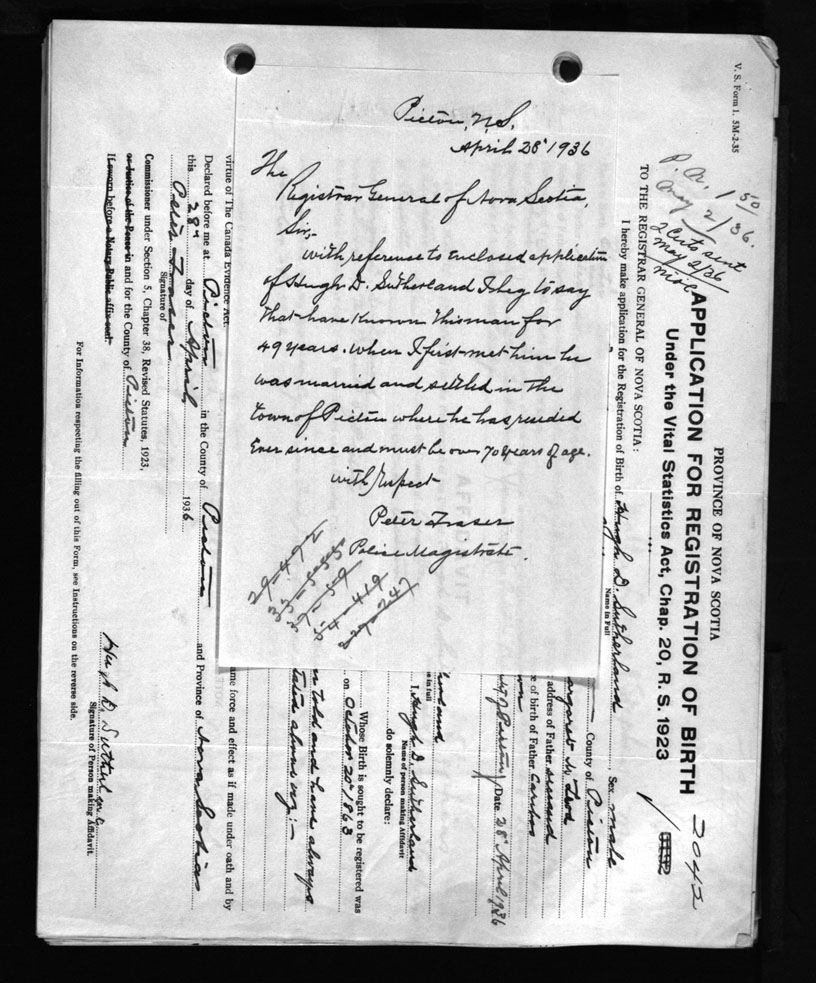 Pictou, N.S.
April 28" 1936
The
Registrar General of Nova Scotia,
Sir,-
With reference to enclosed application
of Hugh D. Sutherland I beg to say
that have known this man for
49 years. When I first met him he
was married and settled in the
town of Pictou where he has resided
Ever since and must be over 70 years of age.
with respect
Peter Fraser
Police Magistrate.
29-492
54-419
247
V. S. Form 1. 5M-2-35
P. N. 1 50/
May 2/36.
2 Certs sent
May 2/36
PROVINCE OF NOVA SCOTIA
APPLICATION FOR REGISTRATION OF BIRTH
2045
Under the Vital Statistics Act, Chap. 20, R. S. 1923
TO THE REGISTRAR GENERAL OF NOVA SCOTIA:
I hereby make application for the Registration of Birth of Hugh D. Sutherland, Sex male
Name in Full
County of Pictou
argaret McLeod
address of Father deceased
e of birth of Father Cariboo
Pictou Date 28" April 1936
herland
e in full
I, Hugh D. Sutherland
Name of person making Affidavit
do solemnly declare:
Whose Birth is sought to be registered was
on October 20" 1863
n told and have always
stated above viz:-
ame force and effect as if made under oath and by
virtue of The Canada Evidence Act.
Declared before me at Pictou in the County of Pictou and Province of Nova Scotia
this 28" day of April 1936
Peter Fraser
Signature of
Hugh D. Sutherland
Signature of Person making Affidavit.
Commissioner under Section 5, Chapter 38, Revised Statutes, 1923,
or Justice of the Peace in and for the County of Pictou
If sworn before a Notary Public affix seal.
For Information respecting the filling out of this Form, see Instructions on the reverse side.